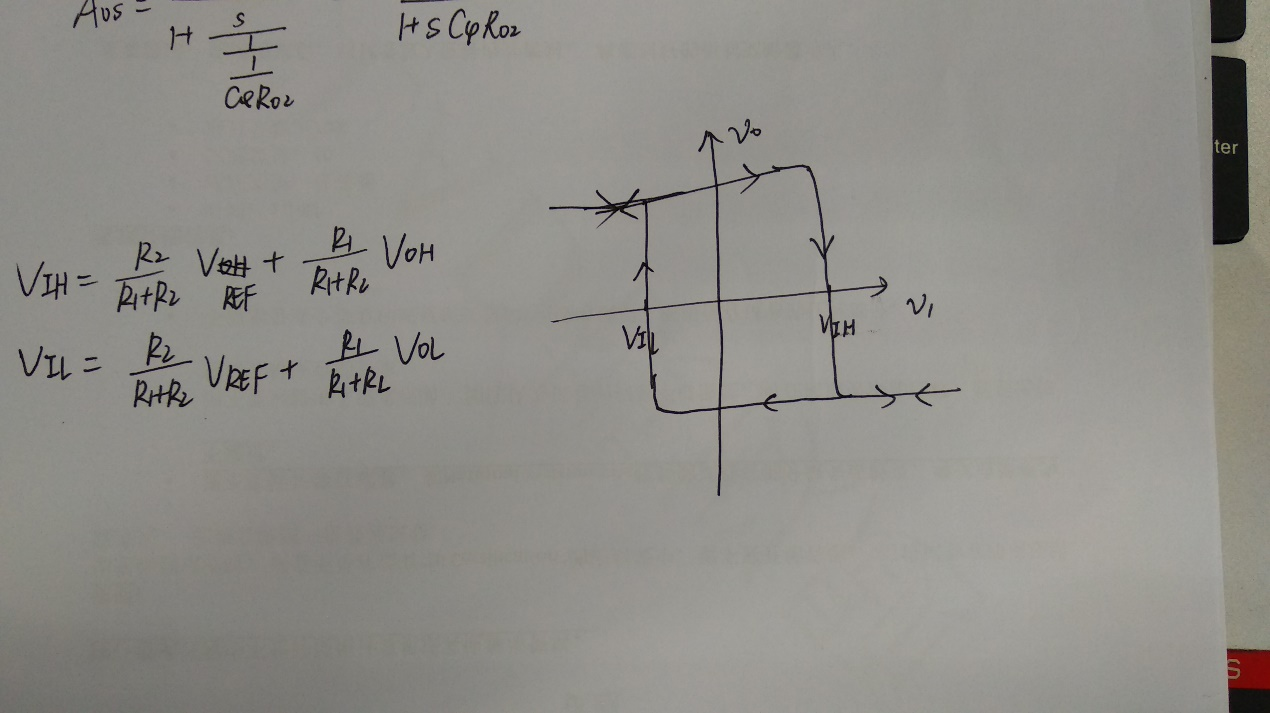 Aus = 
1+ s/(1/(1/(CφRo2)))
1+sCφRo2
VIH = R2/(R1+R2) VREF + R1/(R1+R2) VOH
VIL = R2/(R1+R2) VREF + R1/(R1+R2) VOL
vo
VIL
VIH
vI
ter
S